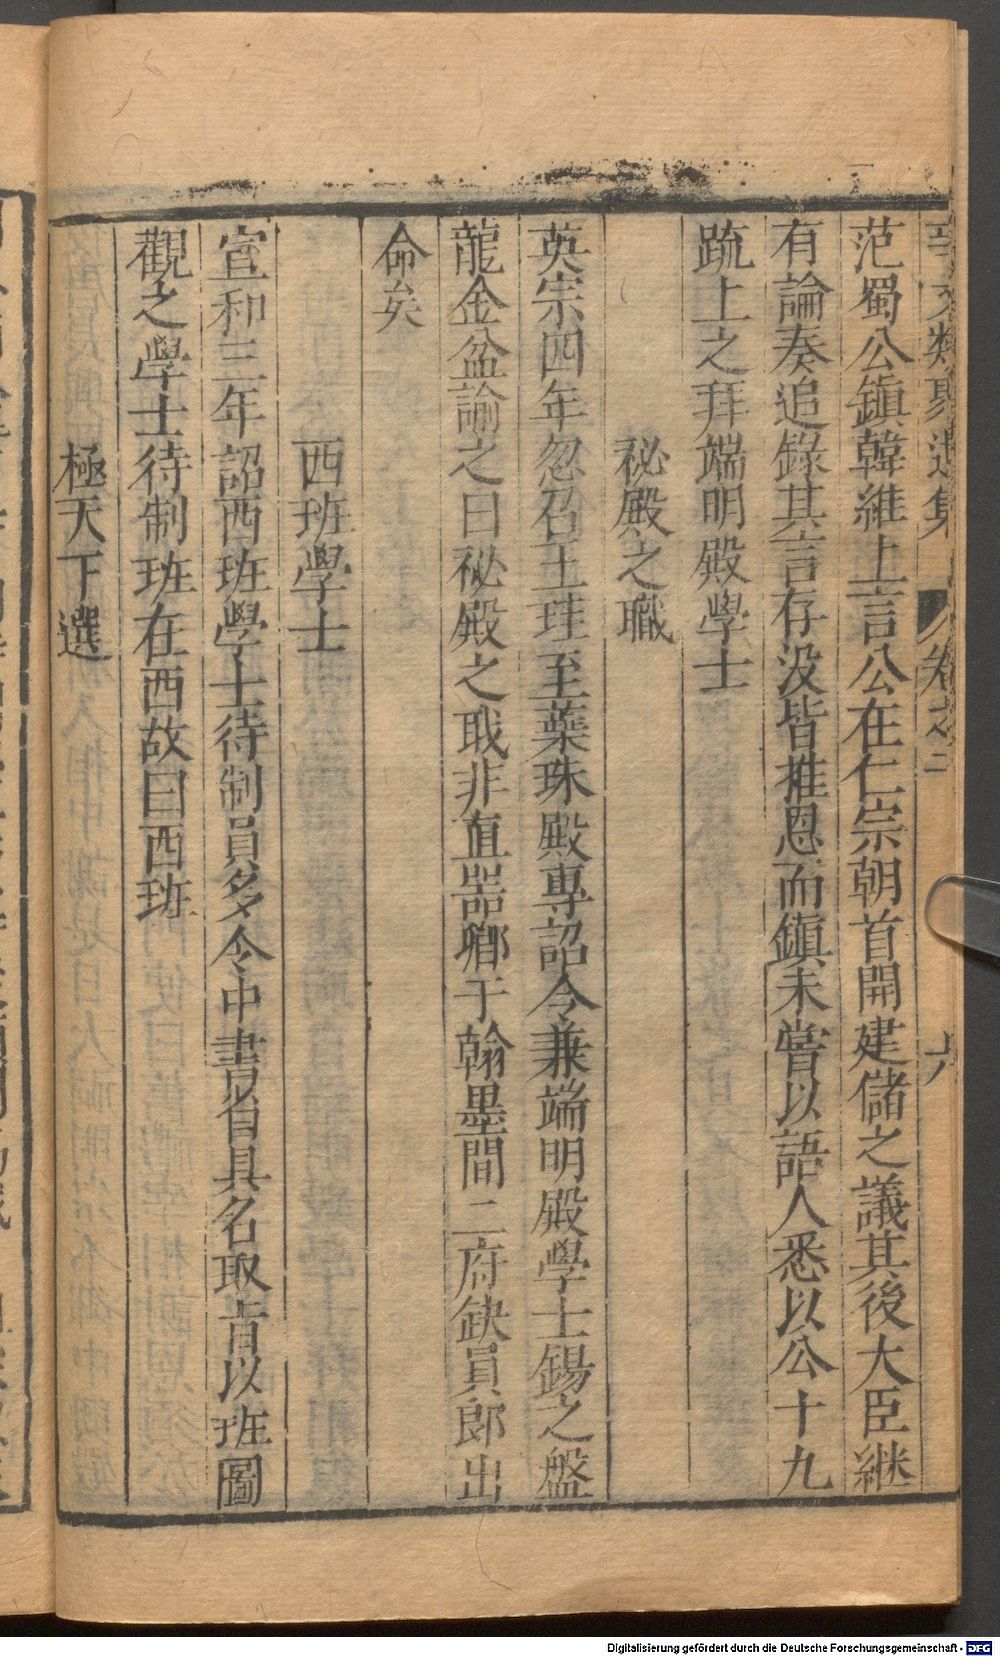 事文類聚遺集 卷之二 六
范蜀公鎮韓維上言公在仁宗朝首開建儲之議其後大臣継
有論奏追錄其言存没皆推恩而鎮未嘗以語人悉以公十九
䟽上之拜端明殿學士
祕殿之職
英宗四年忽召王珪至蘂珠殿專詔令兼端明殿學士錫之盤
龍金盆諭之曰祕殿之職非直器卿于翰墨間二府缺員郎出
命矣
西班學士
宣和三年詔西班學士待制員多令中書省具名取旨以班圖
觀之學士待制班在西故曰西班
極天下選
Digitalisierung gefördert durch die Deutsche Forschungsgemeinschaft - DFG